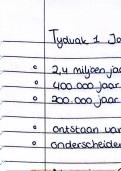 Tijdvak 1 Ja
2,4 miljoen jaa
400.000 jaar
200.000 jaar
ontstaan van
onderscheide